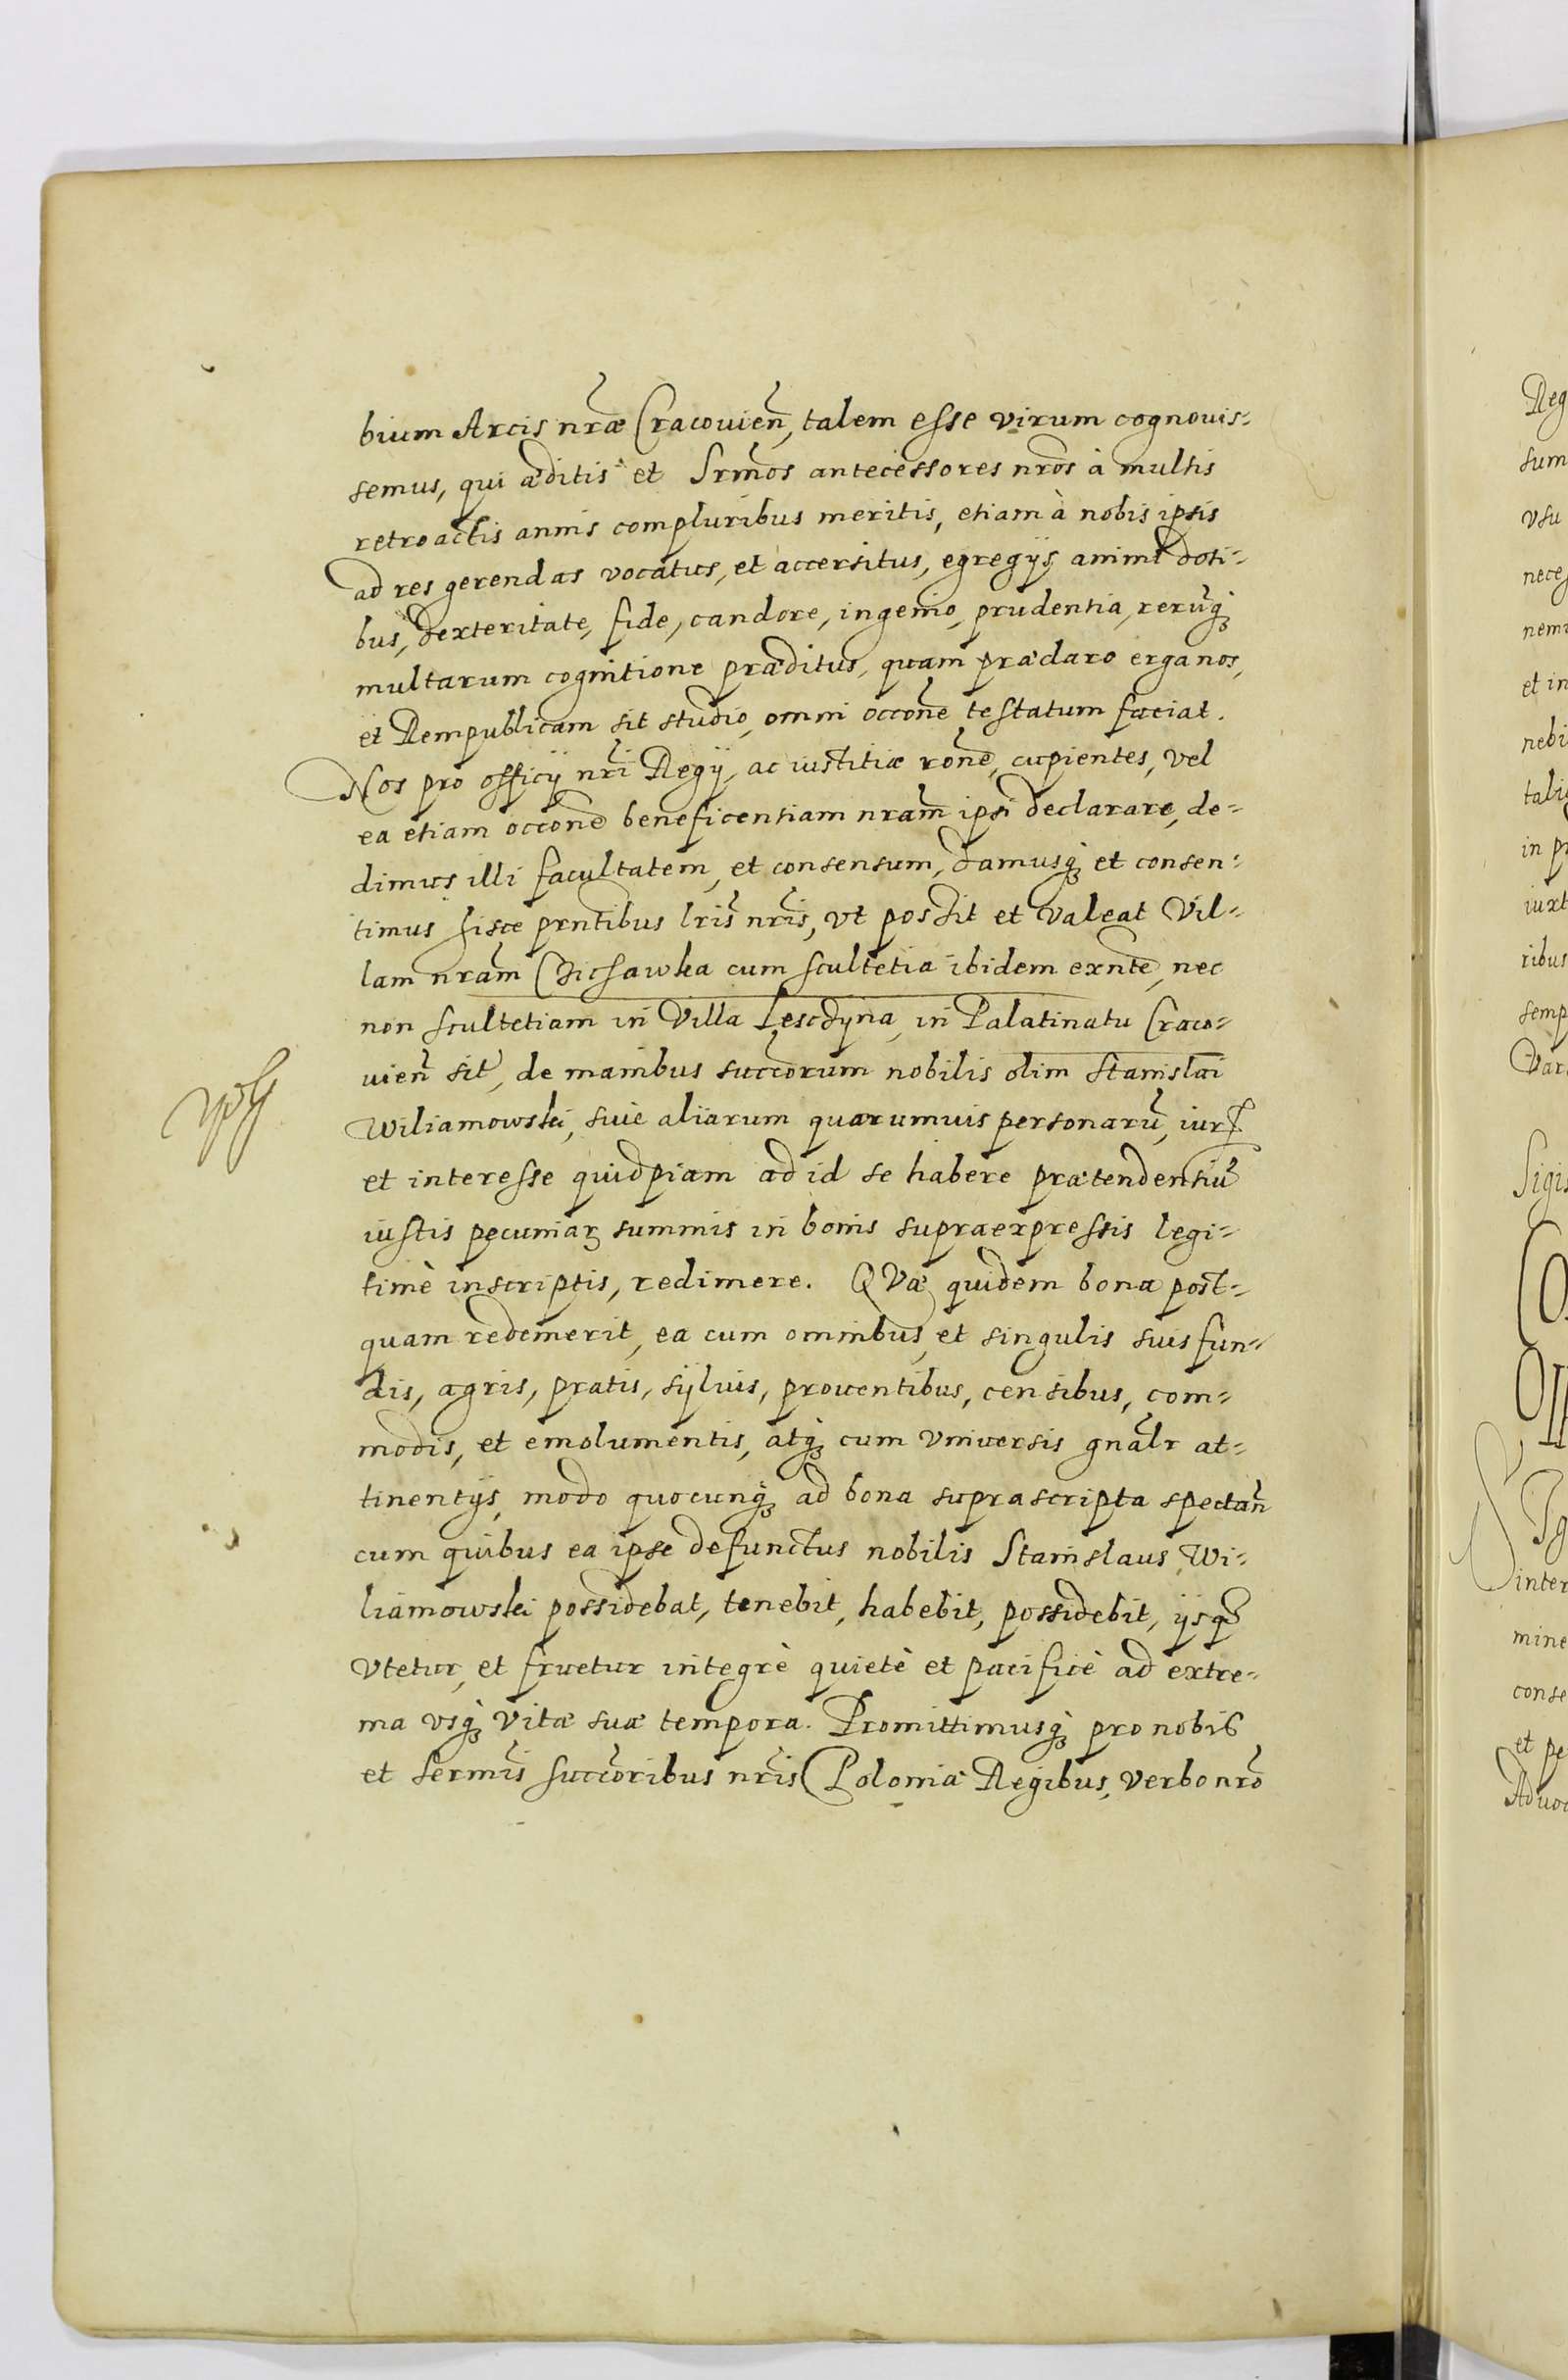 bium Arcis nr̃æ Cracouien̄, talem esse virum cognouis-
semus, qui æditis et Srm̄os antecessores nr̄os à multis
retroactis annis compluribus meritis, etiam à nobis ipsis
ad res gerendas vocatus, et accersitus, egregijs animi doti-
bus, dexteritate, fide, candore, ingenio, prudentia, rerūq́
multarum cognitione præditus, quam præclaro erga nos,
et Rempublicam sit studio, omni occōne testatum faciat.
Nos pro officij nr̄i Regij, ac iustitiæ rōne, cupientes, vel
ea etiam occōne beneficentiam nram̄ ipsi declarare, de-
dimus illi facultatem, et consensum, damusq́ et consen-
timus hisce prn̄tibus lr̄is nr̄is, vt possit et valeat Vil-
lam nram̄ Cichawka cum scultetia ibidem exn̄te, nec
non scultetiam in Villa Lesczyna, in Palatinatu Craco-
uien̄ sit, de manibus succorum nobilis olim Stanislai
Wiliamowski, siue aliarum quarumuis personarū, iur
et interesse quidpiam ad id se habere prætendentiū
iustis pecuniaꝝ summis in bonis supraexpressis legi-
timè inscriptis, redimere. QVæ quidem bona post-
quam redemerit, ea cum omnibus, et singulis suis fun-
dis, agris, pratis, syluis, prouentibus, censibus, com-
modis, et emolumentis, atq́ cum vniuersis gnālr at-
tinentijs, modo quocunq́ ad bona suprascripta spectan̄
cum quibus ea ipse defunctus nobilis Stanislaus Wi-
liamowski possidebat, tenebit, habebit, possidebit, ijsq́
vtetur, et fruetur integrè quietè et pacificè ad extre-
ma vsq́ vitæ suæ tempora. Promittimusq́ pro nobis
et sermīs succōribus nr̄is Poloniæ Regibus, verbo nrō
Reg
sum
vsu
neces
nem
et in
nebi
tali
in p
iuxt
ribus
semp
Var
Sigis
Co
inter
mine
conse
et pe
Aduoc